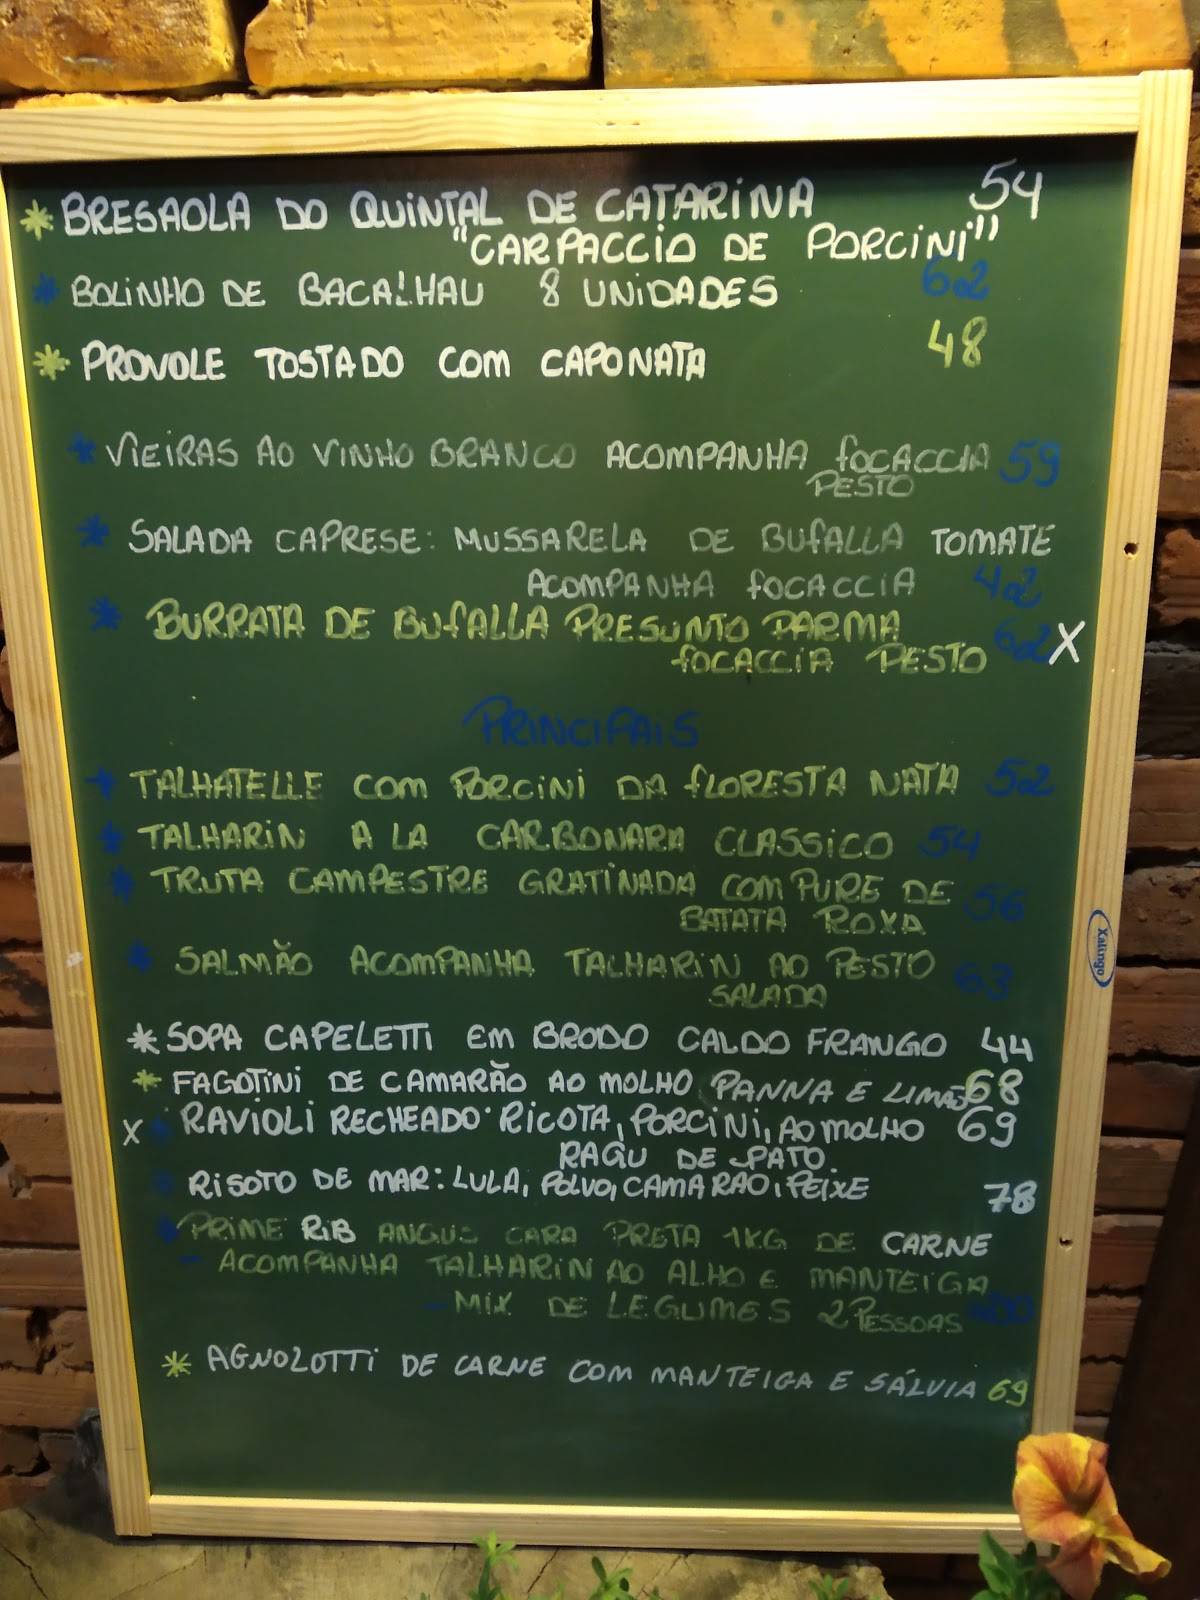 * BRESAOLA DO QUINTAL DE CATARINA 54
"CARPACCIO DE PORCINI"
* BOLINHO DE BACALHAU 8 UNIDADES 62
* PROVOLE TOSTADO COM CAPONATA 48
* VIEIRAS AO VINHO BRANCO ACOMPANHA FOCACCIA 59
PESTO
* SALADA CAPRESE: MUSSARELA DE BUFALLA TOMATE
ACOMPANHA FOCACCIA 42
* BURRATA DE BUFALLA PRESUNTO PARMA 62 X
FOCACCIA PESTO
PRINCIPAIS
* TALHATELLE COM PORCINI DA FLORESTA NATA 52
* TALHARIN A LA CARBONARA CLASSICO 54
* TRUTA CAMPESTRE GRATINADA COM PURE DE 56
BATATA ROXA
* SALMÃO ACOMPANHA TALHARIN AO PESTO 63
SALADA
* SOPA CAPELETTI EM BRODO CALDO FRANGO 44
* FAGOTINI DE CAMARÃO AO MOLHO PANNA E LIMÃO 68
X * RAVIOLI RECHEADO: RICOTA, PORCINI, AO MOLHO 69
RAGU DE PATO.
RISOTO DE MAR: LULA, POLVO, CAMARAO, PEIXE 78
* PRIME RIB ANGUS CARA PRETA 1KG DE CARNE
- ACOMPANHA TALHARIN AO ALHO E MANTEIGA
- MIX DE LEGUMES 2 PESSOAS
* AGNOLOTTI DE CARNE COM MANTEIGA E SÁLVIA 69
Xalingo